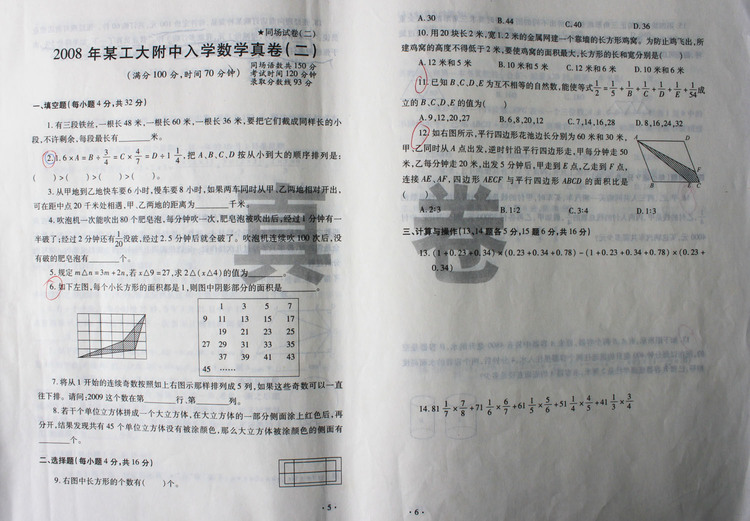 ★同场试卷(二)
2008 年某工大附中入学数学真卷(二)
(满分 100 分,时间 70 分钟)
同场语数共 150 分
考试时间 120 分钟
录取分数线 93 分
一、填空题(每小题 4 分,共 32 分)
1. 有三段铁丝,一根长 48 米,一根长 60 米,一根长 36 米,要把它们截成同样长的小
段,不许剩余,每段最长有______米。
2. 1.6×A=B÷3/4=C×4/7=D÷1 1/4,把 A、B、C、D 按从小到大的顺序排列是:
( )>( )>( )>( )。
3. 从甲地到乙地快车要 6 小时,慢车要 8 小时,如果两车同时从甲、乙两地相对开出,
可在距中点 20 千米处相遇,甲、乙两地的距离为______千米。
4. 吹泡机一次能吹出 80 个肥皂泡,每分钟吹一次,肥皂泡被吹出后,经过 1 分钟有一
半破了;经过 2 分钟还有1/20没破,经过 2.5 分钟后就全破了。吹泡机连续吹 100 次后,没
有破的肥皂泡有______个。
5. 规定 m△n=3m+2n,若 x△9=27,求 2△(x△4)的值为______。
6. 如下左图,每个小长方形的面积都是 1,则图中阴影部分的面积是______。
1 3 5 7
9 11 13 15 17
19 21 23 25
27 29 31 33 35
37 39 41 43
45 ……
7. 将从 1 开始的连续奇数按照如上右图示那样排列成 5 列,如果这些奇数可以一直
往下排。请问:2009 这个数在第______行,第______列。
8. 若干个单位立方体拼成一个大立方体,在大立方体的一部分侧面涂上红色后,再
分开,结果发现共有 45 个单位立方体没有被涂颜色,那么大立方体被涂颜色的侧面有
______个。
二、选择题(每小题 4 分,共 16 分)
9. 右图中长方形的个数有( )个。
· 5 ·
A. 30 B. 44 C. 40 D. 36
10. 用 20 块长 2 米,宽 1.2 米的金属网建一个靠墙的长方形鸡窝。为防止鸡飞出,所
建鸡窝的高度不得低于 2 米,要使鸡窝的面积最大,长方形的长和宽分别是( )
A. 12 米和 5 米 B. 10 米和 5 米 C. 12 米和 6 米 D. 10 米和 6 米
11. 已知 B、C、D、E 为互不相等的自然数,能使等式1/2=1/5+1/B+1/C+1/D+1/E+1/54成
立的 B、C、D、E 的值为( )
A. 9,12,20,27 B. 6,8,20,12 C. 7,14,16,28 D. 8,16,24,32
12. 如右图所示,平行四边形花池边长分别为 60 米和 30 米,
甲、乙同时从 A 点出发,逆时针沿平行四边形走,甲每分钟走 50
米,乙每分钟走 20 米,出发 5 分钟后,甲走到 E 点,乙走到 F 点,
连接 AE、AF,四边形 AECF 与平行四边形 ABCD 的面积比是
( )
A D
B E C
A. 2∶3 B. 1∶2 C. 3∶4 D. 1∶3
三、计算与操作(13、14 题各 5 分,15 题 6 分,共 16 分)
13. (1+0.23+0.34)×(0.23+0.34+0.78)-(1+0.23+0.34+0.78)×(0.23+
0.34)
14. 81 1/7×7/8+71 1/6×6/7+61 1/5×5/6+51 1/4×4/5+41 1/3×3/4
· 6 ·
真卷